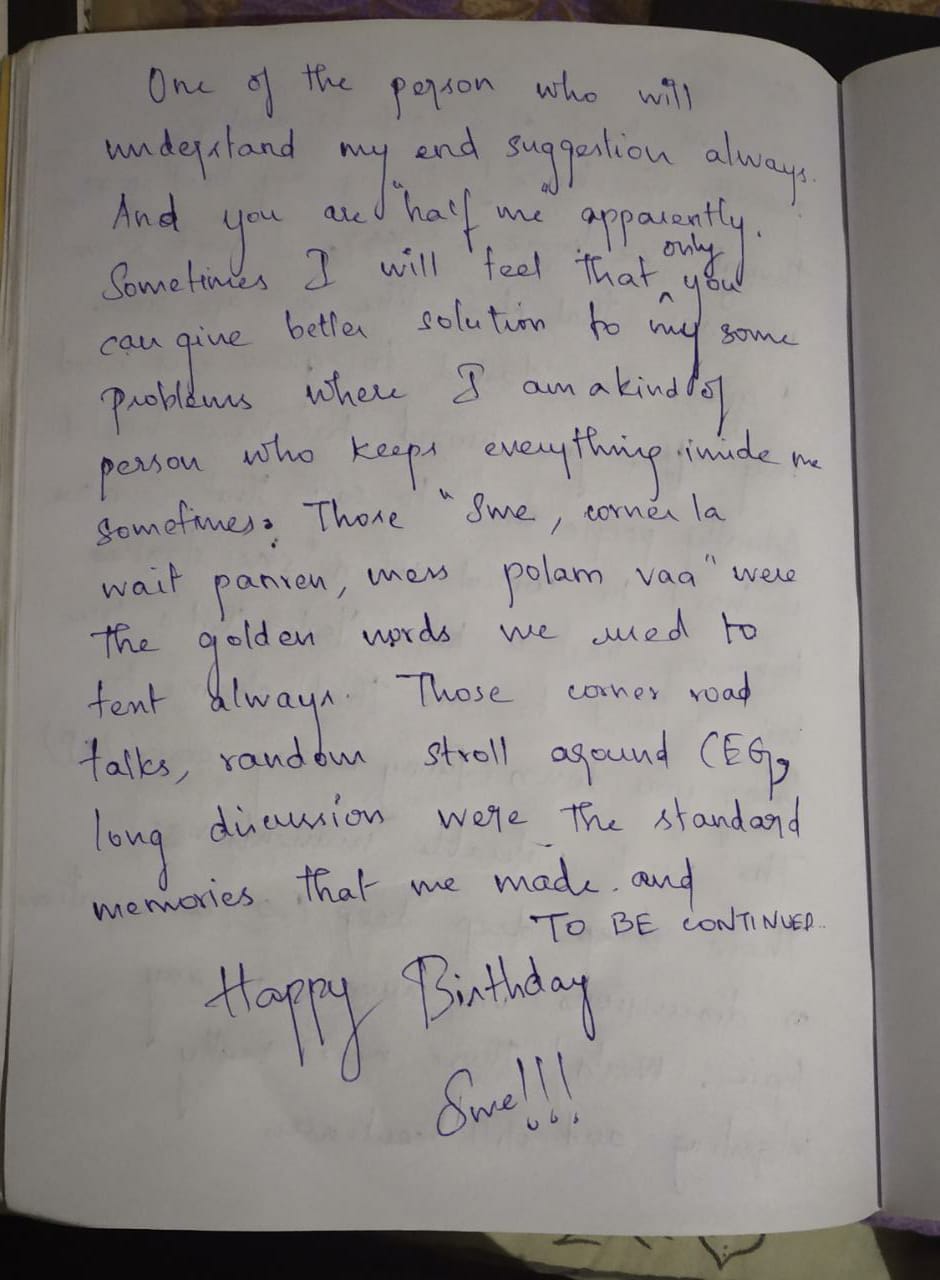 One of the person who will
understand my end suggestion always.
And you are "half me" apparently.
Sometimes I will feel that only you
can give better solution to my some
problems where I am a kind of
person who keeps everything inside me
sometimes. Those "Swe, corner la
wait panren, mess polam vaa" were
the golden words we used to
text always. Those corner road
talks, random stroll around CEG,
long discussion were the standard
memories that we made. and
TO BE CONTINUED..
Happy Birthday
Swe!!!